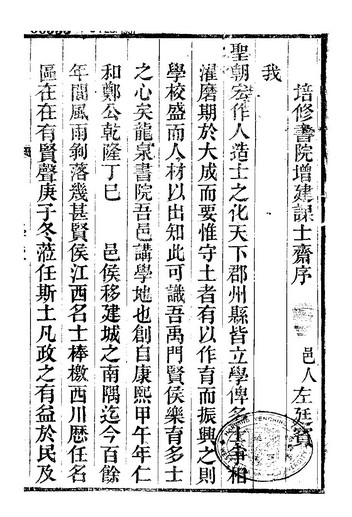 培修書院增建課士齋序
邑人左廷賓
我
聖朝宏作人造士之化天下郡州縣皆立學俾多士爭相
濯磨期於大成而要惟守土者有以作育而振興之則
學校盛而人材以出知此可識吾禹門賢侯樂育多士
之心矣龍泉書院吾邑講學地也創自康熙甲午年仁
和鄭公乾隆丁巳 邑侯移建城之南隅迄今百餘
年間風雨剝落幾甚賢侯江西名士捧檄西川歷任名
區在在有賢聲庚子冬蒞任斯土凡政之有益於民及